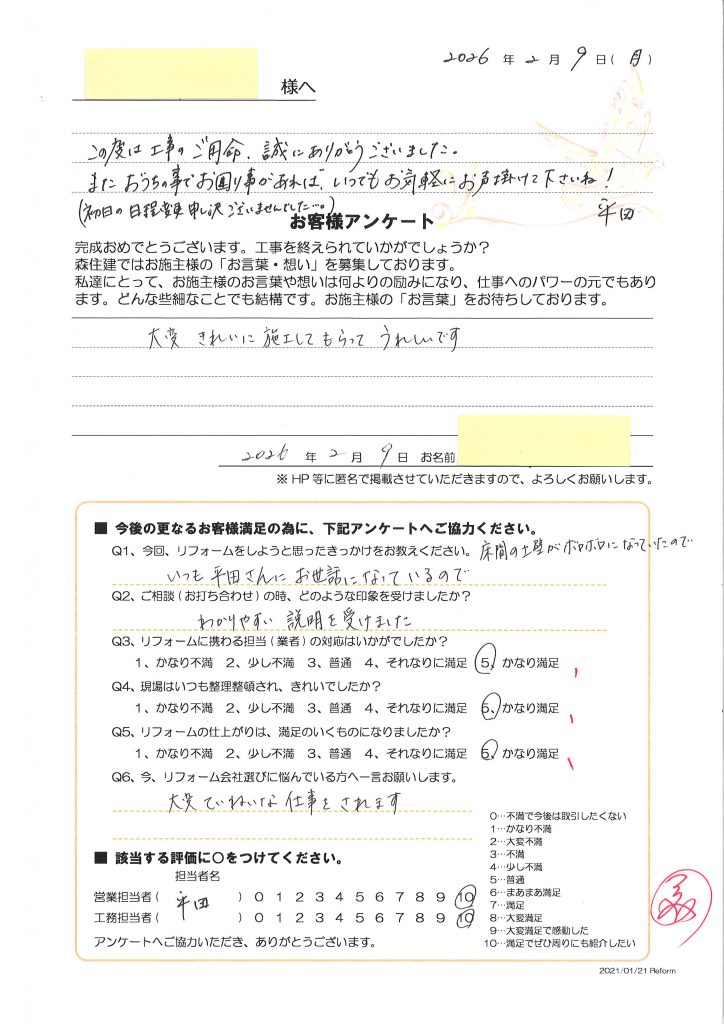 2026 年 2 月 9 日(月)
様へ
この度は工事のご用命、誠にありがとうございました。
またおうちの事でお困り事があれば、いつでもお気軽にお声掛けて下さいね！
(初日の日程変更申し訳ございませんでした…。) 平田
お客様アンケート
完成おめでとうございます。工事を終えられていかがでしょうか？
森住建ではお施主様の「お言葉・想い」を募集しております。
私達にとって、お施主様のお言葉や想いは何よりの励みになり、仕事へのパワーの元でもあり
ます。どんな些細なことでも結構です。お施主様の「お言葉」をお待ちしております。
大変 きれいに 施工して もらって うれしいです
2026 年 2 月 9 日 お名前
※ HP 等に匿名で掲載させていただきますので、よろしくお願いします。
■ 今後の更なるお客様満足の為に、下記アンケートへご協力ください。
Q1、今回、リフォームをしようと思ったきっかけをお教えください。 床間の土壁がボロボロになっていたので
いつも 平田さんに お世話になっているので
Q2、ご相談(お打ち合わせ)の時、どのような印象を受けましたか？
わかりやすい 説明を受けました
Q3、リフォームに携わる担当(業者)の対応はいかがでしたか？
1、かなり不満 2、少し不満 3、普通 4、それなりに満足 5、かなり満足
Q4、現場はいつも整理整頓され、きれいでしたか？
1、かなり不満 2、少し不満 3、普通 4、それなりに満足 5、かなり満足
Q5、リフォームの仕上がりは、満足のいくものになりましたか？
1、かなり不満 2、少し不満 3、普通 4、それなりに満足 5、かなり満足
Q6、今、リフォーム会社選びに悩んでいる方へ一言お願いします。
大変 ていねいな 仕事をされます
■ 該当する評価に○をつけてください。
担当者名
営業担当者( 平田 ) 0 1 2 3 4 5 6 7 8 9 10
工務担当者( ) 0 1 2 3 4 5 6 7 8 9 10
アンケートへご協力いただき、ありがとうございます。
0…不満で今後は取引したくない
1…かなり不満
2…大変不満
3…不満
4…少し不満
5…普通
6…まあまあ満足
7…満足
8…大変満足
9…大変満足で感動した
10…満足でぜひ周りにも紹介したい
2021/01/21 Reform